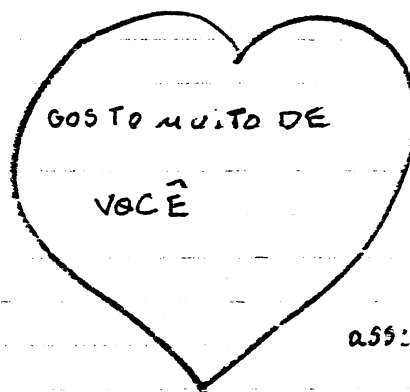 GOSTO MUITO DE
VOCÊ
ass: